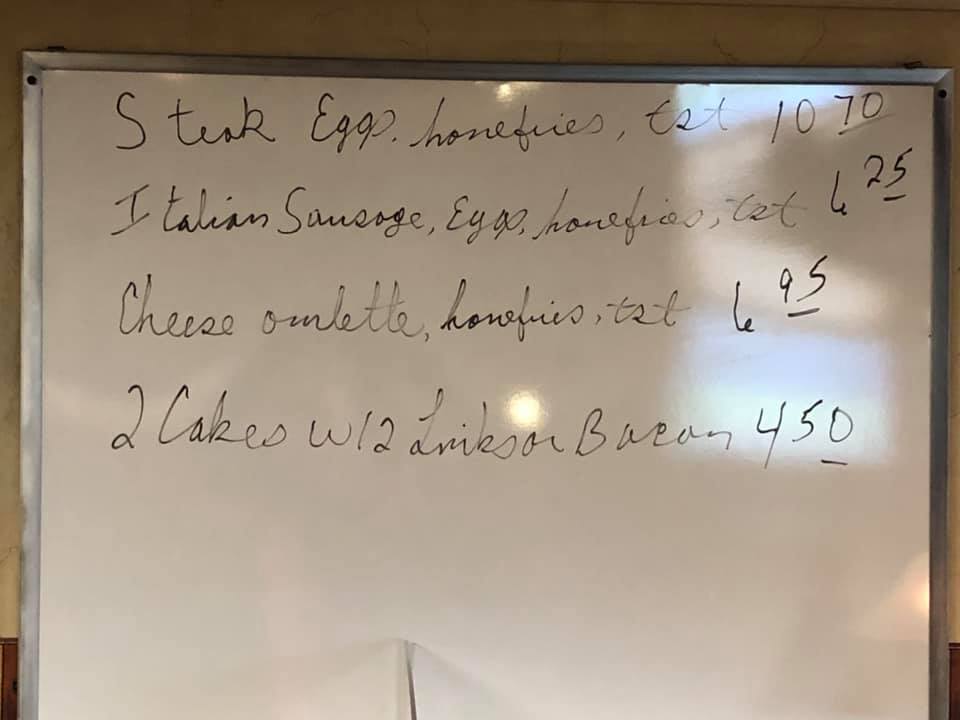 Steak Eggs, homefries, tst 10 70
Italian Sausage, Eggs, homefries, tst 6 25
Cheese omlette, homefries, tst 6 95
2 Cakes w/2 Links or Bacon 4 50